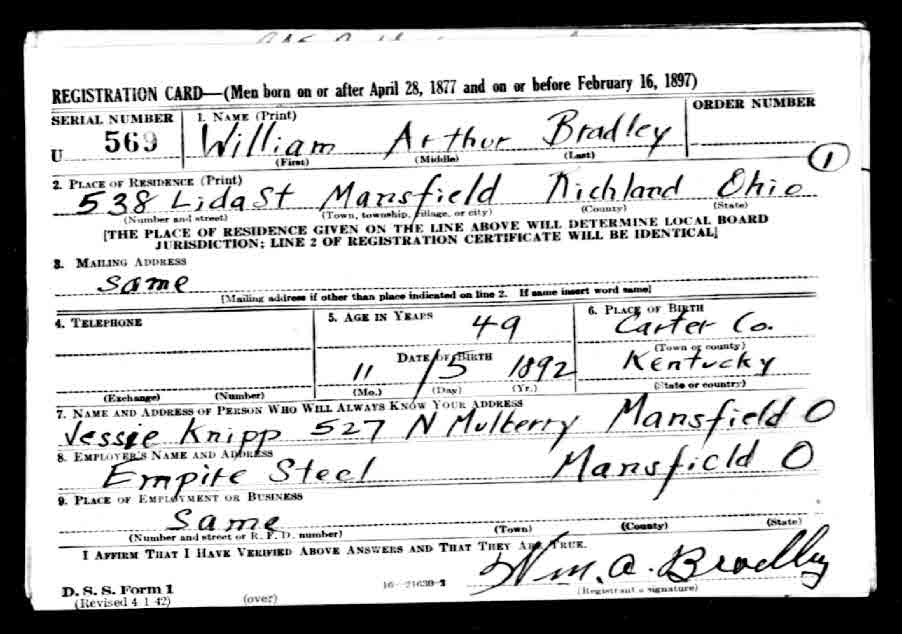 REGISTRATION CARD—(Men born on or after April 28, 1877 and on or before February 16, 1897)
SERIAL NUMBER
U 569
1. NAME (Print)
William Arthur Bradley
(First) (Middle) (Last)
ORDER NUMBER
1
2. PLACE OF RESIDENCE (Print)
538 Lida St Mansfield Richland Ohio
(Number and street) (Town, township, village, or city) (County) (State)
[THE PLACE OF RESIDENCE GIVEN ON THE LINE ABOVE WILL DETERMINE LOCAL BOARD
JURISDICTION; LINE 2 OF REGISTRATION CERTIFICATE WILL BE IDENTICAL]
3. MAILING ADDRESS
Same
[Mailing address if other than place indicated on line 2. If same insert word same]
4. TELEPHONE
(Exchange) (Number)
5. AGE IN YEARS
49
DATE OF BIRTH
11 / 5 1892
(Mo.) (Day) (Yr.)
6. PLACE OF BIRTH
Carter Co.
(Town or county)
Kentucky
(State or country)
7. NAME AND ADDRESS OF PERSON WHO WILL ALWAYS KNOW YOUR ADDRESS
Jessie Knipp 527 N Mulberry Mansfield O
8. EMPLOYER'S NAME AND ADDRESS
Empire Steel Mansfield O
9. PLACE OF EMPLOYMENT OR BUSINESS
Same
(Number and street or R. F. D. number) (Town) (County) (State)
I AFFIRM THAT I HAVE VERIFIED ABOVE ANSWERS AND THAT THEY ARE TRUE.
Wm. A. Bradley
D. S. S. Form 1
(Revised 4-1-42) (over) 16—21630-2 (Registrant's signature)